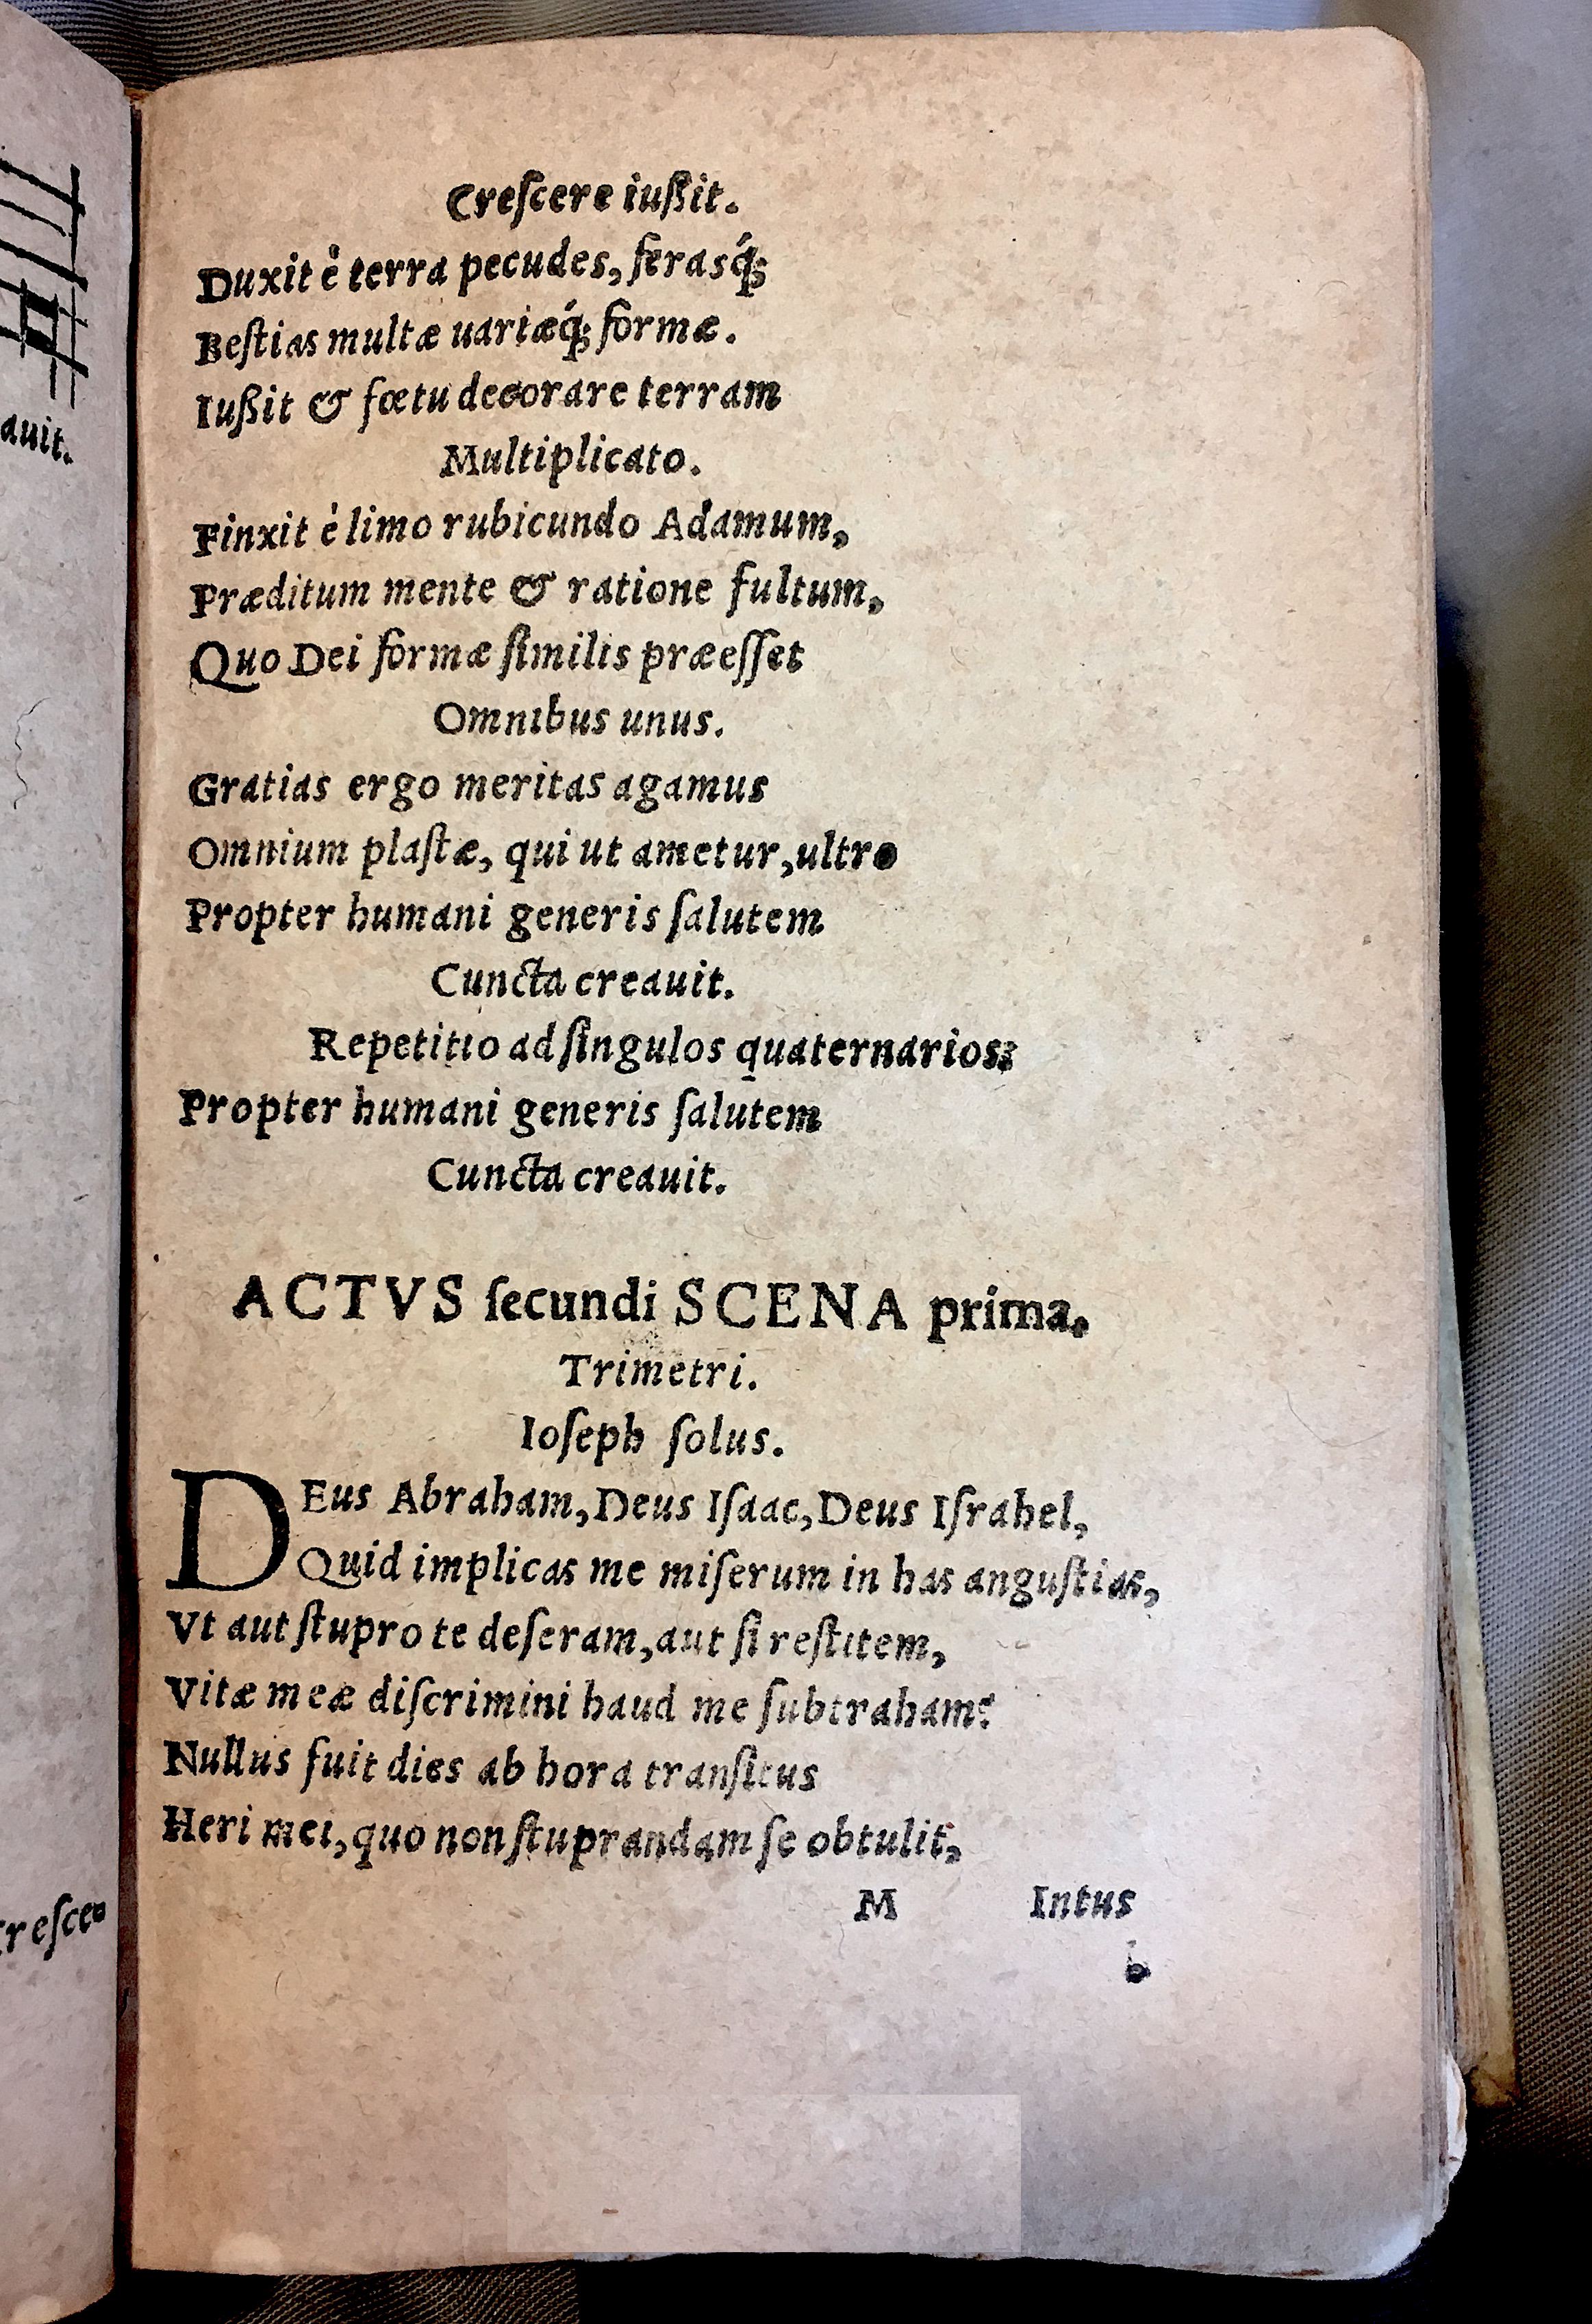 auit.
Creſcere iußit.
Duxit è terra pecudes, ferasq́;
Beſtias multæ uariæq́; formæ.
Iußit & fœtu decorare terram
Multiplicato.
Finxit è limo rubicundo Adamum,
Præditum mente & ratione fultum,
Quo Dei formæ ſimilis præeſſet
Omnibus unus.
Gratias ergo meritas agamus
Omnium plaſtæ, qui ut ametur, ultro
Propter humani generis ſalutem
Cuncta creauit.
Repetitio ad ſingulos quaternarios:
Propter humani generis ſalutem
Cuncta creauit.
ACTVS ſecundi SCENA prima.
Trimetri.
Ioſeph ſolus.
DEus Abraham, Deus Iſaac, Deus Iſrahel,
Quid implicas me miſerum in has anguſtias,
Vt aut ſtupro te deſeram, aut ſi reſtitem,
Vitæ meæ diſcrimini haud me ſubtraham?
Nullus fuit dies ab hora tranſitus
Heri mei, quo non ſtuprandam ſe obtulit,
M Intus
b
creſce-